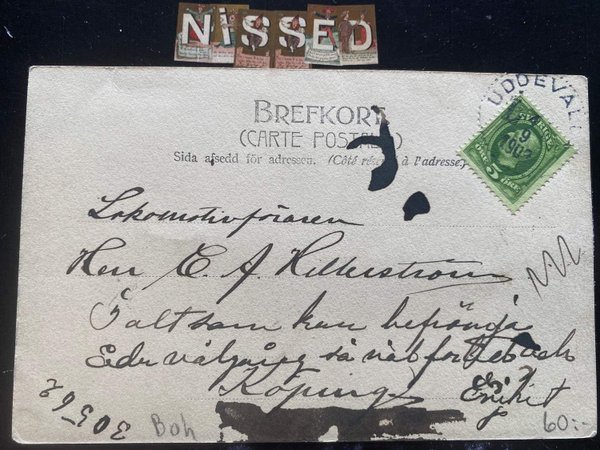 NiSSED
BREFKORT
(CARTE POSTALE)
Sida afsedd för adressen. (Côté réservé à l'adresse)
UDDEVALL
9
1902
SVERIGE
5 ÖRE
Lokomotivföraren
Herr E. A. Hellerström
allt som kan befrämja
Eder välgång så väl for
Köping
Enskilt
30562
Boh
60:-